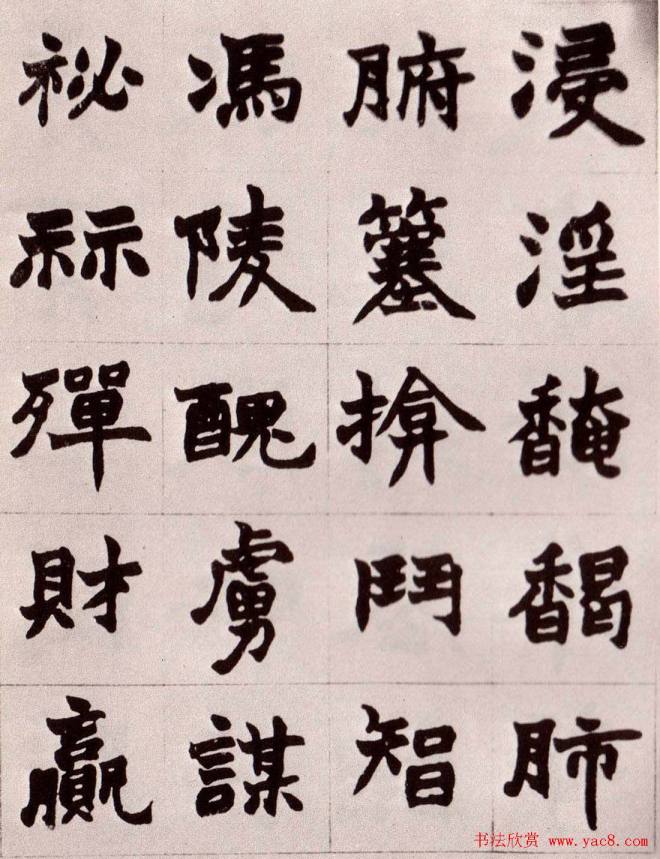 浸淫馣馤肺
腑簺揜鬥智
馮陵醜虜謀
祕祘殫財贏
书法欣赏 www.yac8.com